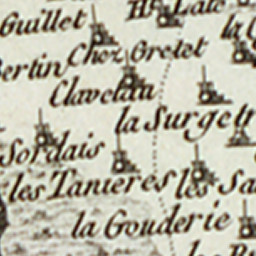 Guillet
la
Chez Grolet
Bertin
Clavelau
la Surget
Sordais
les Tanieres
les Sa
la Gouderie